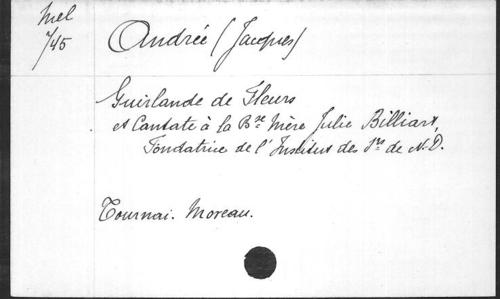 Mel
745
Andrée (Jacques)
Guirlande de Fleurs
et Cantate à la Bse Mère Julie Billiart,
Fondatrice de l'Institut des Srs de N.D.
Tournai. Moreau.